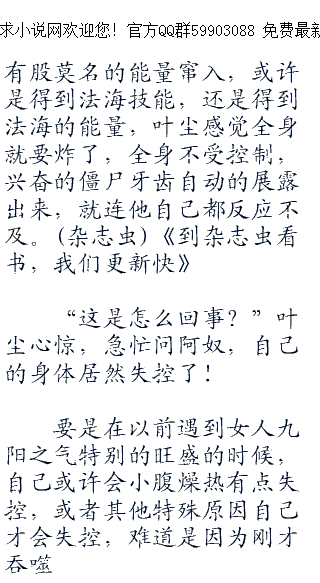 求小说网欢迎您！官方QQ群59903088 免费最新
有股莫名的能量窜入，或许
是得到法海技能，还是得到
法海的能量，叶尘感觉全身
就要炸了，全身不受控制，
兴奋的僵尸牙齿自动的展露
出来，就连他自己都反应不
及。(杂志虫)《到杂志虫看
书，我们更新快》
“这是怎么回事？”叶
尘心惊，急忙问阿奴，自己
的身体居然失控了！
要是在以前遇到女人九
阳之气特别的旺盛的时候，
自己或许会小腹燥热有点失
控，或者其他特殊原因自己
才会失控，难道是因为刚才
吞噬